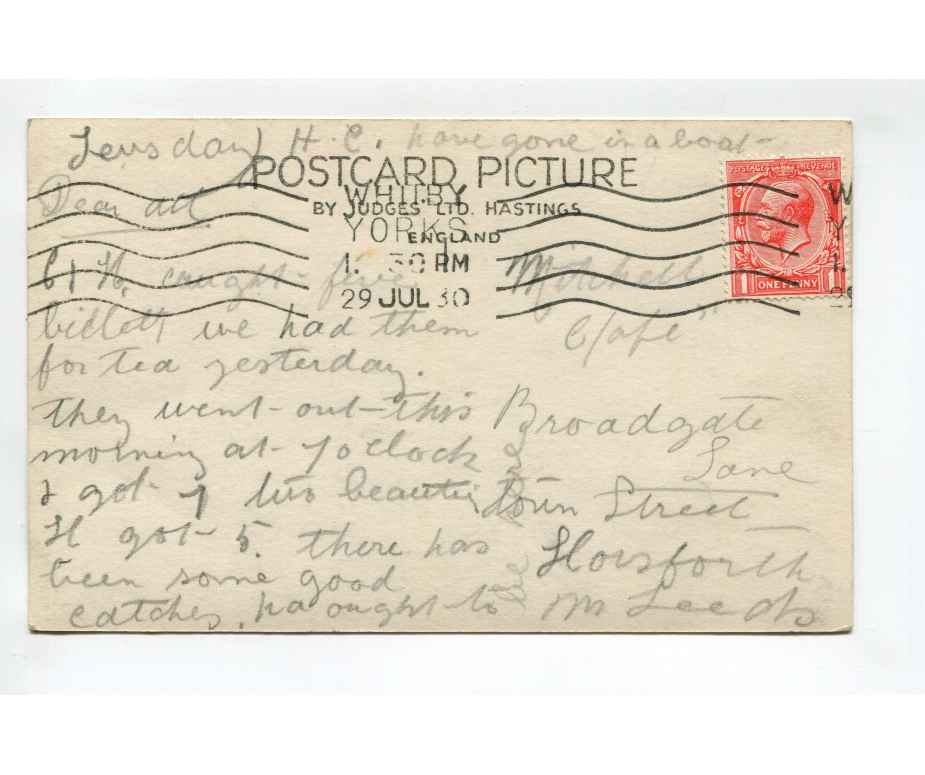 Teusday H.C. have gone in a boat
POSTCARD PICTURE
BY JUDGES' LTD. HASTINGS
ENGLAND
WHITBY
YORKS
1. 30 PM
29 JUL 30
POSTAGE REVENUE
ONE PENNY
Dear all
H. caught five
billett we had them
for tea yesterday.
they went out this
morning at 7 oclock
got 7 two
H got 5. there has
been some good
catches, pa ought to
Mitchell
Cafe"
Broadgate
Lane
town Street
Horsforth
Leeds